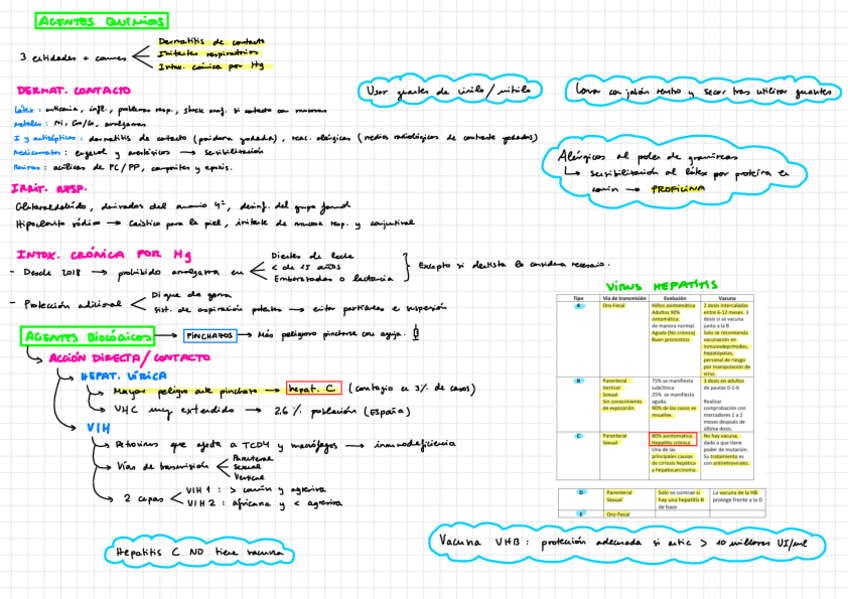 AGENTES QUÍMICOS
3 entidades + comunes
Dermatitis de contacto
Irritantes respiratorios
Intox. crónica por Hg
Usar guantes de vinilo / nitrilo
Lavar con jabón neutro y secar tras utilizar guantes
DERMAT. CONTACTO
Látex: urticaria, infl., problema resp., shock anaf. si contacto con mucosas
Metales: Ni, Co/Cr, amalgamas
I y antisépticos: dermatitis de contacto (povidona yodada), reac. alérgicas (medios radiológicos de contraste yodados)
Medicamentos: eugenol y analógicos → sensibilización
Resinas: acrílicas de PC/PP, composites y epoxis.
Alérgicos al polen de gramíneas
↳ sensibilización al látex por proteína en
común → PROFILINA
IRRIT. RESP.
Glutaraldehído, derivados del amonio 4º, desinf. del grupo fenol
Hipoclorito sódico → Caústico para la piel, irritante de mucosa resp. y conjuntival
INTOX. CRÓNICA POR Hg
- Desde 2018 → prohibido amalgama en
Dientes de leche
< de 15 años
Embarazadas o lactancia
Excepto si dentista lo considera necesario.
- Protección adicional
Dique de goma
Sist. de aspiración potentes → evitar partículas en suspensión
AGENTES BIOLÓGICOS → PINCHAZOS → Más peligroso pincharse con aguja.
↳ ACCIÓN DIRECTA/CONTACTO
HEPAT. VÍRICA
Mayor peligro ante pinchazo → hepat. C (contagio en 3% de casos)
VHC muy extendido → 2,6% población (España)
VIH
Retrovirus que afecta a TCD4 y macrófagos → inmunodeficiencia
Vías de transmisión
Parenteral
Sexual
Vertical
2 cepas
VIH 1: > común y agresiva
VIH 2: africana y < agresiva
Hepatitis C NO tiene vacuna
VIRUS HEPATITIS
Tipo Vía de transmisión Evolución Vacuna
A
Oro-Fecal
Niños asintomática.
Adultos 90%
sintomática.
de manera normal.
Aguda (No crónica)
Buen pronostico.
2 dosis intercaladas
entre 6-12 meses. 3
dosis si se vacuna
junto a la B
Solo se recomienda
vacunación en
inmunodeprimidos,
hepatópatas,
personal de riesgo
por manipulación de
virus.
B
Parenteral
Vertical
Sexual
Sin conocimiento
de exposición.
75% se manifiesta
subclínica
25% se manifiesta
aguda.
90% de los casos se
resuelve.
3 dosis en adultos
de pautas 0-1-6
Realizar
comprobación con
marcadores 1 a 2
meses después de
última dosis.
C
Parenteral
Sexual
80% asintomática.
Hepatitis crónica
Una de las
principales causas
de cirrosis hepática
y hepatocarcinoma.
No hay vacuna,
dado a que tiene
poder de mutación.
Su tratamiento es
con antiretrovirales.
D
Parenteral
Sexual
Solo se contrae si
hay una hepatitis B
de base
La vacuna de la HB
protege frente a la D
E
Oro-Fecal
Vacuna VHB: protección adecuada si antic > 10 millones UI/ml